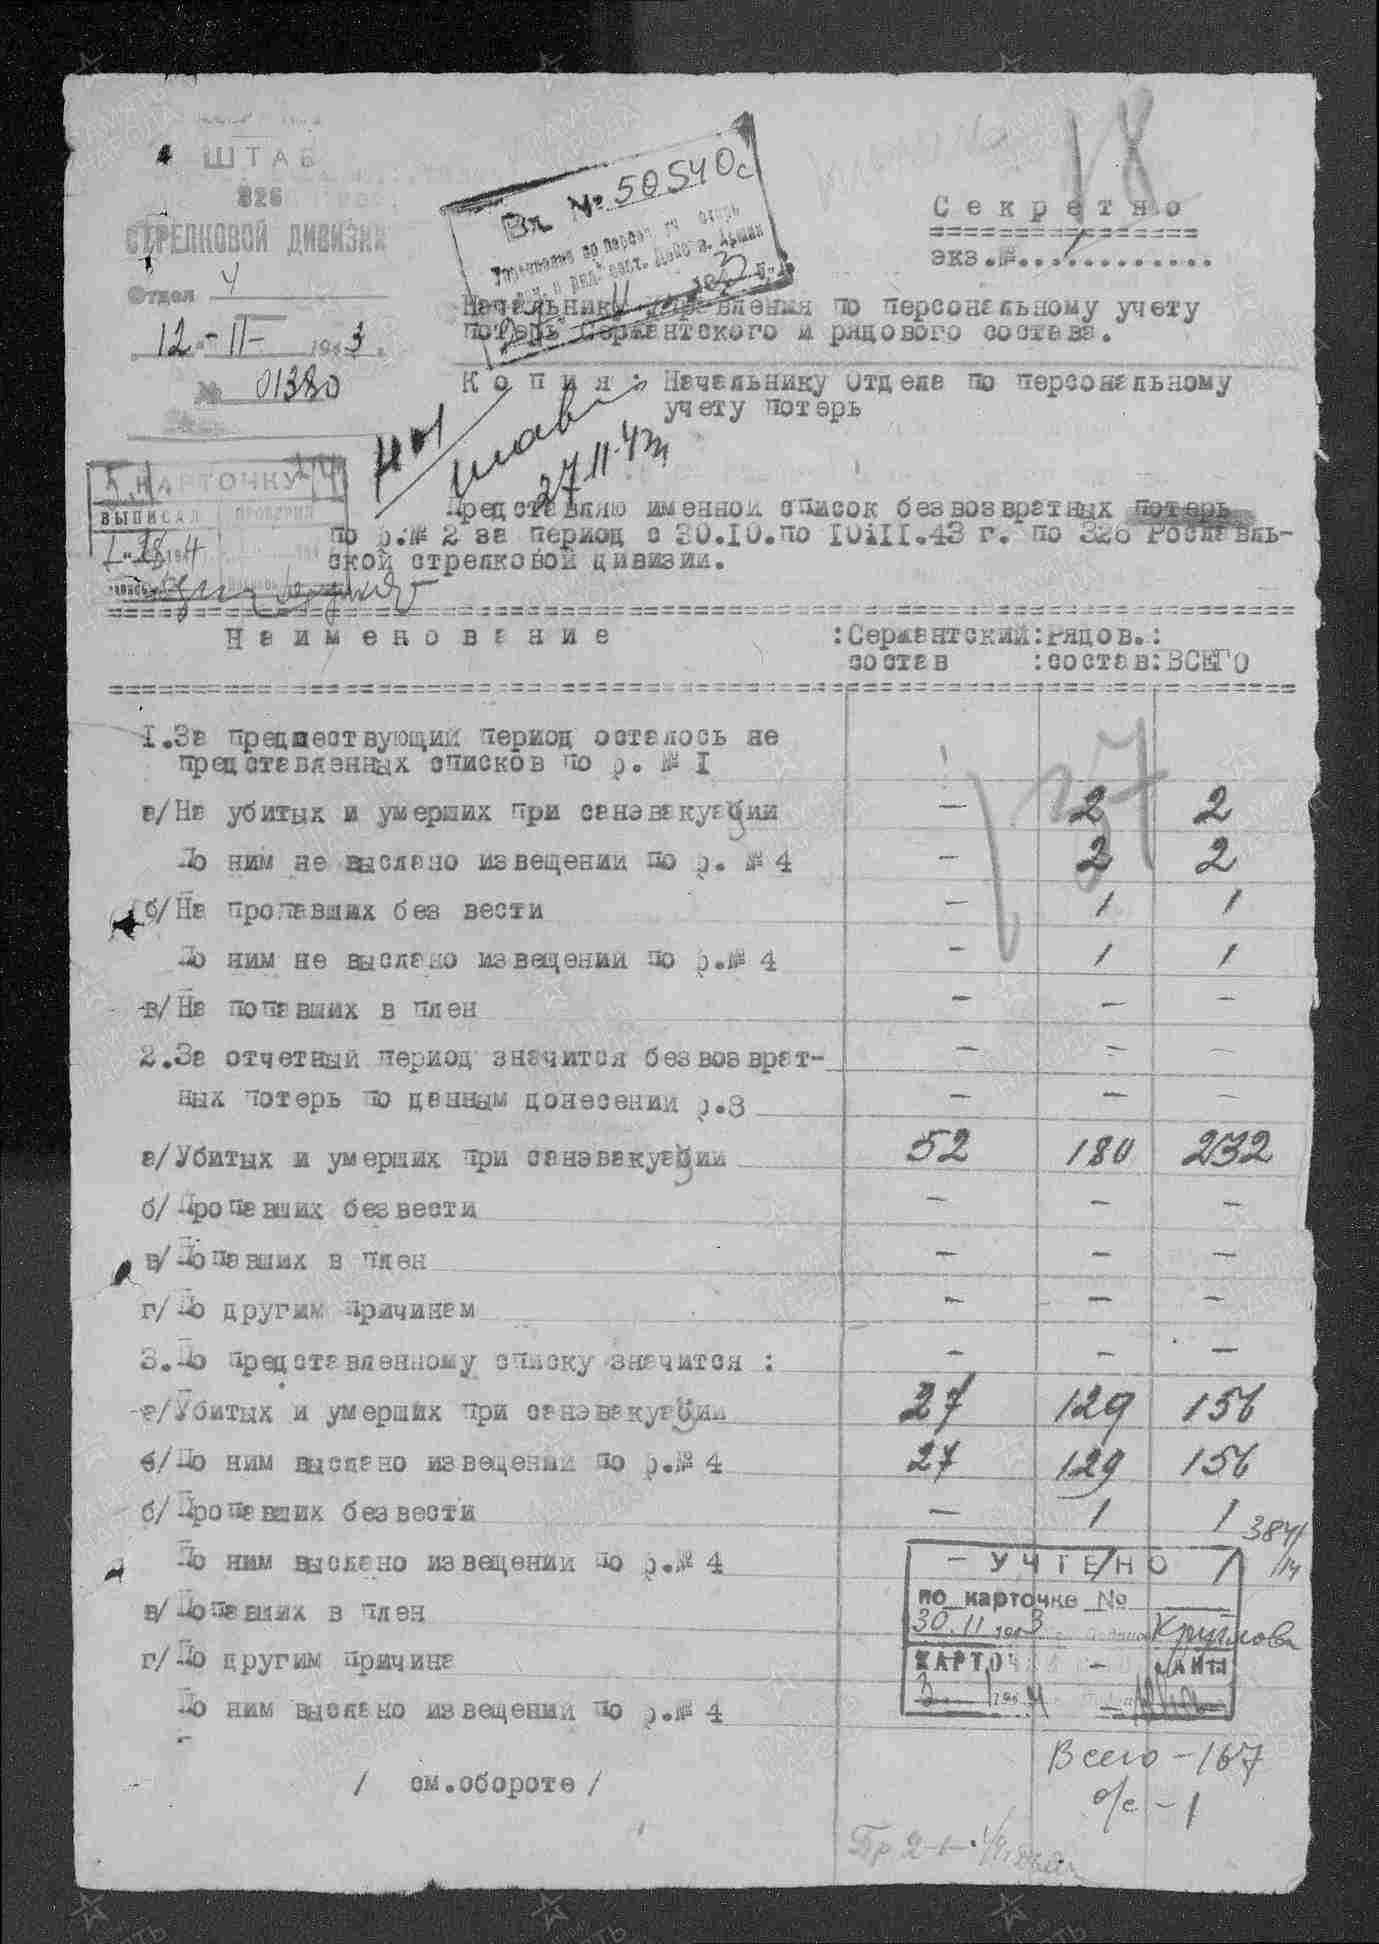 ШТАБ
326
СТРЕЛКОВОЙ ДИВИЗИИ
Отдел 4
12 - II - 1943 г.
№ 01380
Вх № 50540с
18
Секретно
экз.№. 1
Начальнику Управления по персональному учету
потерь сержантского и рядового состава.
Копия: Начальнику Отдела по персональному
учету потерь
27.11.43
КАРТОЧКУ
ВЫПИСАЛ ПРОВЕРИЛ
Представляю именной список безвозвратных потерь
по р.№ 2 за период с 30.10.по 10.11.43 г. по 326 Рославль-
ской стрелковой дивизии.
Наименование :Сержантский:Рядов.:
состав :состав:ВСЕГО
1.За предшествующий период осталось не
представленных списков по р. № I
а/На убитых и умерших при санэвакуации — 2 2
По ним не выслано извещений по р. № 4 — 2 2
б/На пропавших без вести — 1 1
По ним не выслано извещений по р.№ 4 — 1 1
в/На попавших в плен — — —
2.За отчетный период значится безвозврат- — — —
ных потерь по данным донесений р.3 — — —
а/Убитых и умерших при санэвакуации 52 180 232
б/Пропавших безвести — — —
в/Попавших в плен — — —
г/По другим причинам — — —
3.По представленному списку значится : — — —
а/Убитых и умерших при санэвакуации 27 129 156
б/По ним выслано извещений по р.№ 4 27 129 156
б/Пропавших безвести — 1 1
По ним выслано извещений по р.№ 4 — 1 1
в/Попавших в плен
г/По другим причина
По ним выслано извещений по р.№ 4
УЧТЕНО
по карточке №
30.11 1943 Круглова
Всего - 167
о/с - 1
/ см.обороте /